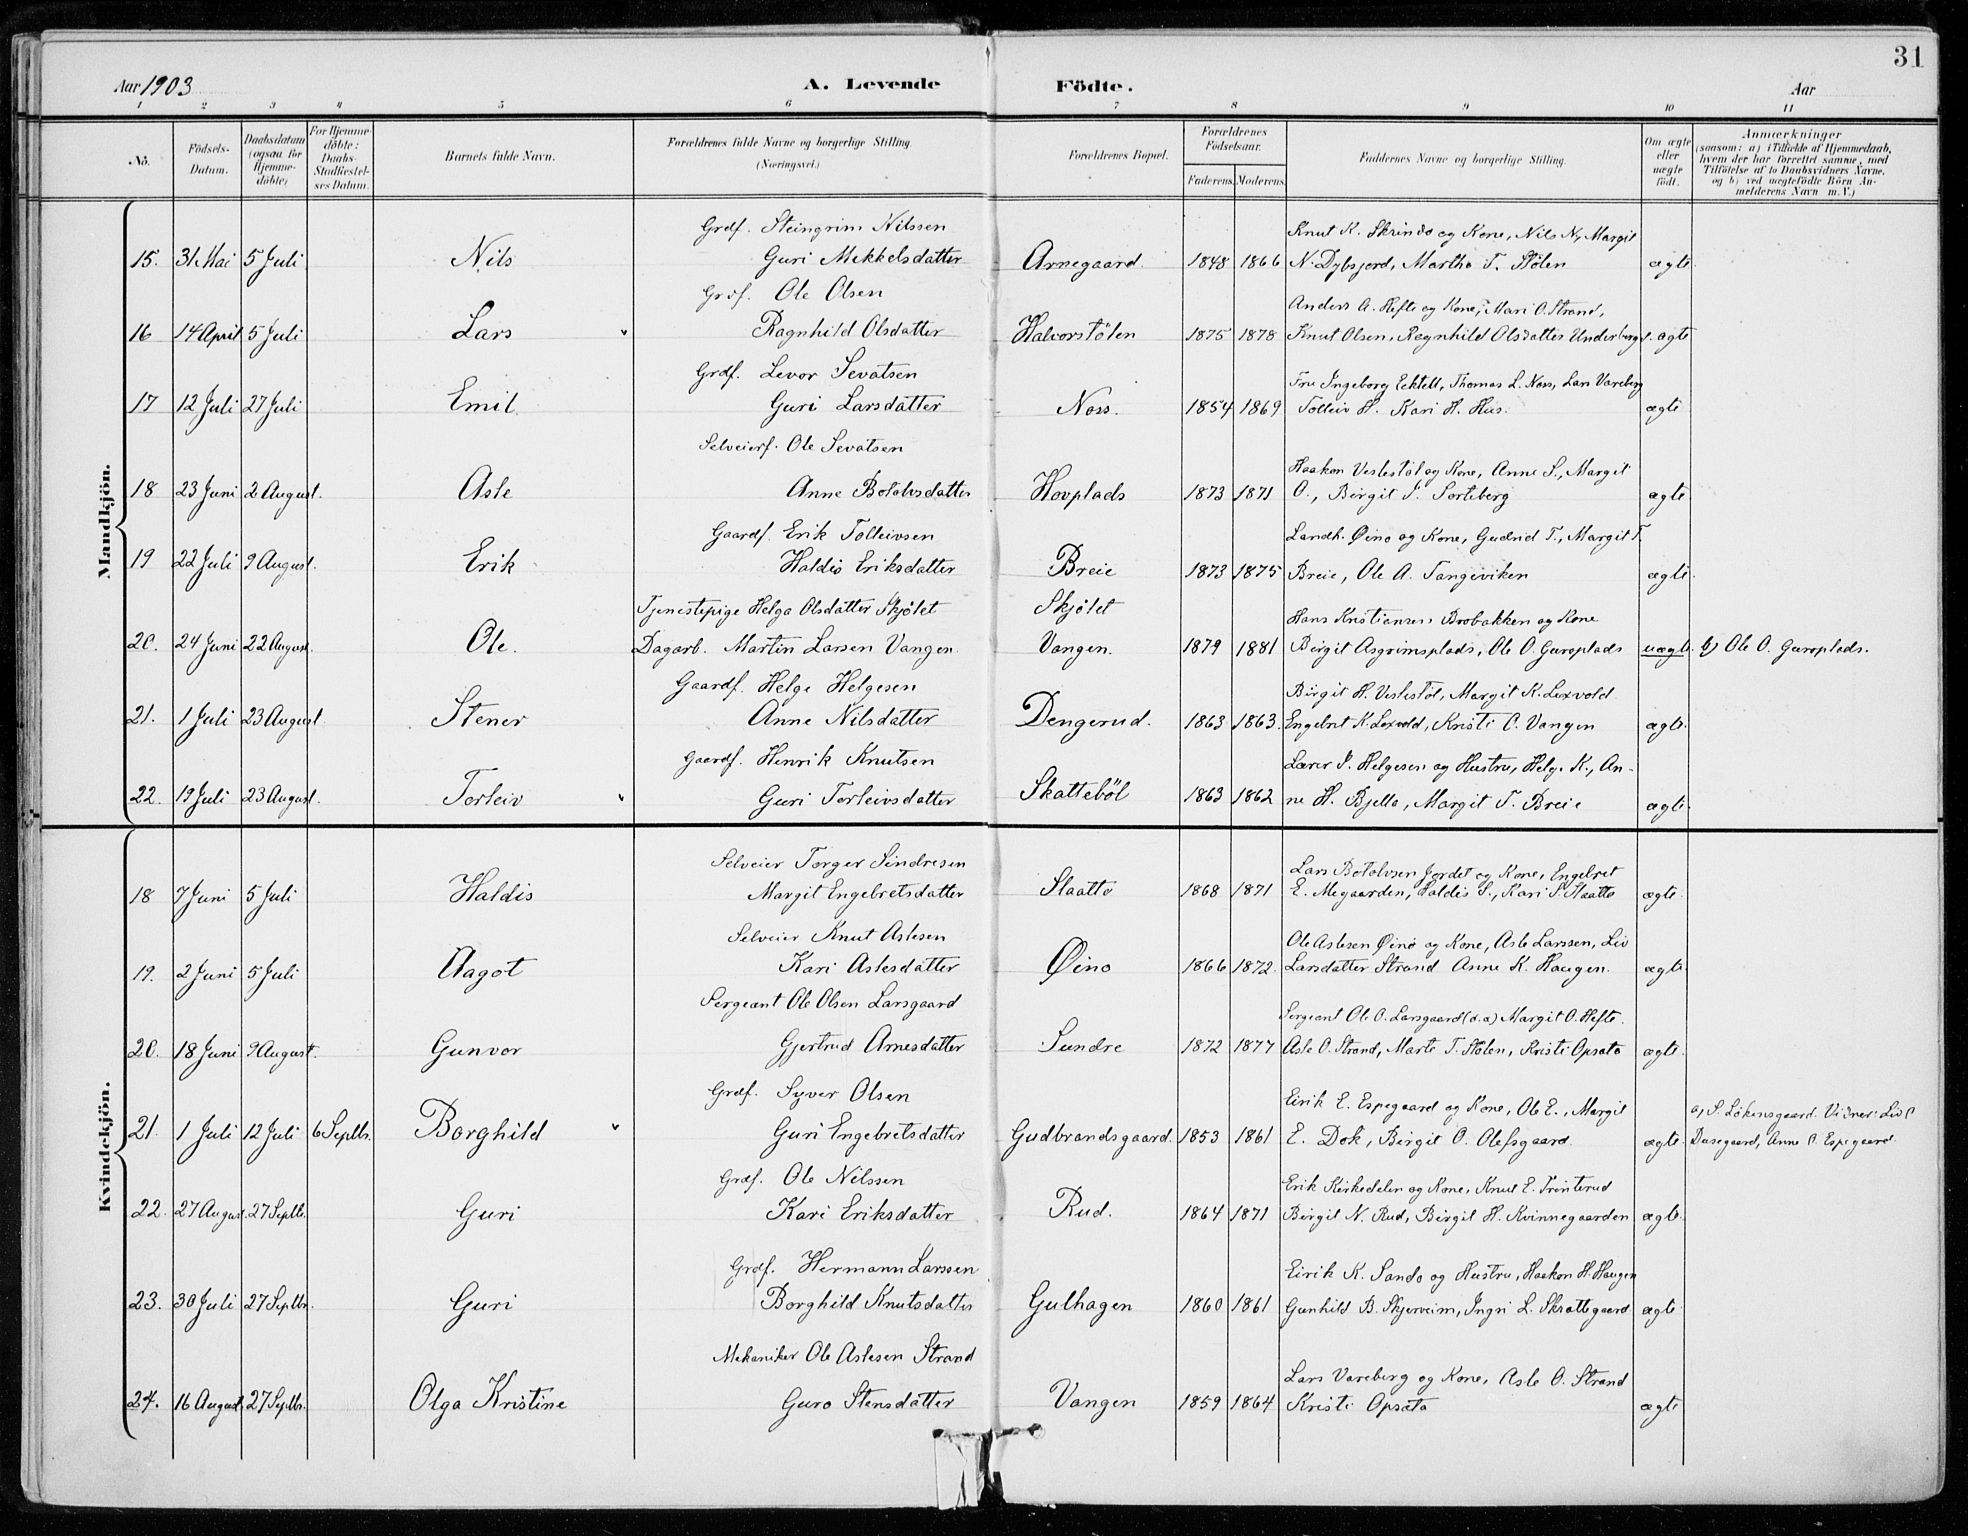 31
Aar 1903 A. Levende Födte. Aar
1 2 3 4 5 6 7 8 9 10 11
No. Födsels-Datum. Daabsdatum (ogsaa for Hjemme-döbte) For Hjemme-döbte: Daabs-Stadfæstel-ses Datum. Barnets fulde Navn. Forældrenes fulde Navne og borgerlige Stilling. (Næringsvei.) Forældrenes Bopæl. Forældrenes Födselsaar. Faderens. Moderens. Faddernes Navne og borgerlige Stilling. Om ægte eller uægte født. Anmærkninger (saasom: a) i Tilfælde af Hjemmedaab, hvem der har forrettet samme, med Tilföielse af to Daabsvidners Navne, og b) ved uægtefödte Börn An-melderens Navn m.V.)
Mandkjön.
Grdf. Steingrim Nilssen Knut K. Skrindo og Kone, Nils N, Margit
15. 31 Mai 5 Juli Nils Guri Mekkelsdatter Arnegaard. 1848 1866 N. Dybsjord, Martha T. Stølen ægte
Grdf. Ole Olsen Anders A. Hefte og Kone, Mari O. Strand,
16 14 April 5 Juli Lars " Ragnhild Olsdatter Halvorstølen 1875 1878 Knut Olsen, Ragnhild Olsdatter Underberg ægte
Grdf. Levor Sevatsen Fru Ingeborg Ecktell, Thomas L. Noss, Lars Vareberg
17 12 Juli 27 Juli Emil Guri Larsdatter Noss. 1854 1869 Tolleiv H. Kari H. Hus. ægte
Selveierf. Ole Sevatsen Haakon Veslestøl og Kone, Anne S., Margit
18 23 Juni 2 August. Asle Anne Botolvsdatter Hovplads 1873 1871 O., Birgit S. Sorteberg ægte
Gaardf. Erik Tolleivsen Landh. Øino og Kone, Gudrid T., Margit T.
19 22 Juli 9 August. Erik Haldis Eriksdatter Breie 1873 1875 Breie, Ole A. Tangeviken ægte
Tjenestepige Helga Olsdatter Skjølet Skjølet Hans Kristiansen Brobakken og Kone
20. 24 Juni 22 August. Ole. Dagarb. Martin Larsen Vangen Vangen. 1879 1881 Birgit Asgrimsplads, Ole O. Guroplads uægte. b) Ole O. Guroplads.
Gaardf. Helge Helgesen Birgit H. Veslestøl, Margit K. Lexvold
21. 1 Juli 23 August Stener Anne Nilsdatter Dengerud. 1863 1863. Engebrit K. Lexvold, Kristi O. Vangen ægte.
Gaardf. Henrik Knutsen Lærer S. Helgesen og Hustru, Helge K., An-
22. 19 Juli 23 August. Torleiv " Guri Torleivsdatter Skattebøl 1863 1862 ne H. Bjella, Margit T. Breie ægte
Kvindekjön.
Selveier Torger Sindresen Lars Botolvsen Jordet og Kone, Engebret
18 7 Juni 5 Juli Haldis Margit Engebretsdatter Slaatto 1868 1871 E. Megaarden, Haldis S., Kari S. Slaatto ægte.
Selveier Knut Aslesen Ole Aslesen Øino og Kone, Asle Larssen, Liv
19. 2 Juni 5 Juli Aagot Kari Aslesdatter Øino 1866 1872. Larsdatter Strand Anne K. Haugen. ægte
Sergeant Ole Olsen Larsgaard Sergeant Ole O. Larsgaard (d.a) Margit O. Hefte.
20. 18 Juni 9 August. Gunvor Gjertrud Arnesdatter Sundre 1872 1877 Asle O. Strand, Marte T. Stølen, Kristi Opsata ægte.
Grdf. Syver Olsen Eirik E. Espegaard og Kone, Ole E., Margit a, S. Løkensgaard. Vidner: Liv O
21. 1 Juli 12 Juli 6 Septbr. Borghild " Guri Engebretsdatter Gudbrandsgaard. 1853 1861 E. Dok, Birgit O. Olefsgaard. ægte. Dusegaard, Anne O. Espegaard
Grdf. Ole Nilssen Erik Kirkedelen og Kone, Knut E. Trinterud
22. 27 August. 27 Septb. Guri Kari Eriksdatter Rud. 1864 1871 Birgit N. Rud, Birgit H. Kvinnegaarden ægte.
Grdf. Hermann Larssen Eirik K. Sando og Hustru, Haakon H. Haugen
23. 30 Juli 27 Septbr. Guri Borghild Knutsdatter Gulhagen 1860 1861 Gunhild B. Skjerveim, Ingri L. Skrattegaard ægte
Mekaniker Ole Aslesen Strand Lars Vareberg og Kone, Asle O. Strand
24. 16 August. 27 Septbr. Olga Kristine Guro Stensdatter Vangen 1859 1864 Kristi Opsata ægte